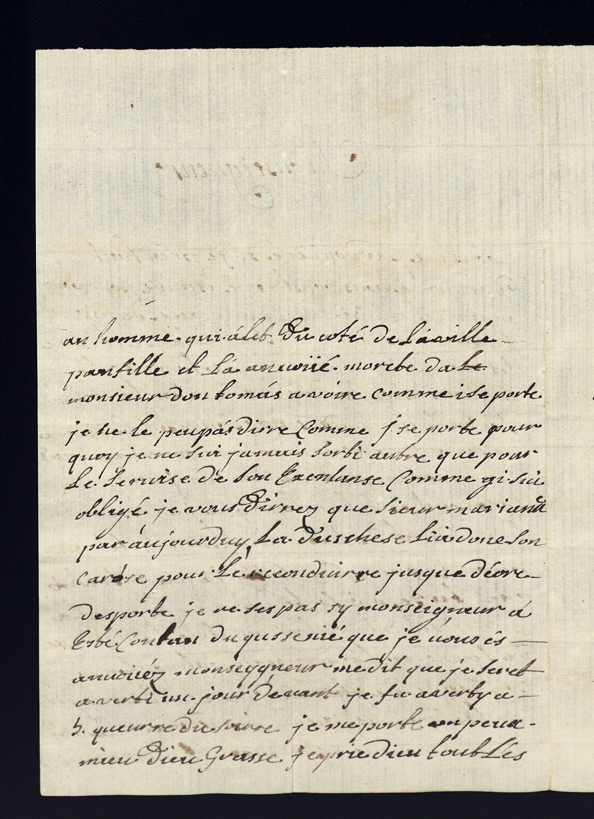 an homme qui alet Du coté de La ville
pantille et La anvoiié morebe da Le
monsieur don tomás a voire comme i se porte
je ne le peu pas dirre Comme j se porte pour
quoy je ne sui jamais sorti autre que pour
Le servise de son Exenlanse Comme gi sui
obligé je vous Dirrez que sieur mariana
par aujourduy La Duschese Lia done son
Carose pour Le reconduirre jusque déore
desporte je ne ses pas sy monseigneur á
Esté Contan du qussenié que je vous és
anvoiiéz monseygneur me dit que je seret
averti un jour devant je fu averty a
5. queurre du soirre je me porte un peux
mieu Dieu Grasse je prie dieu toubt Les